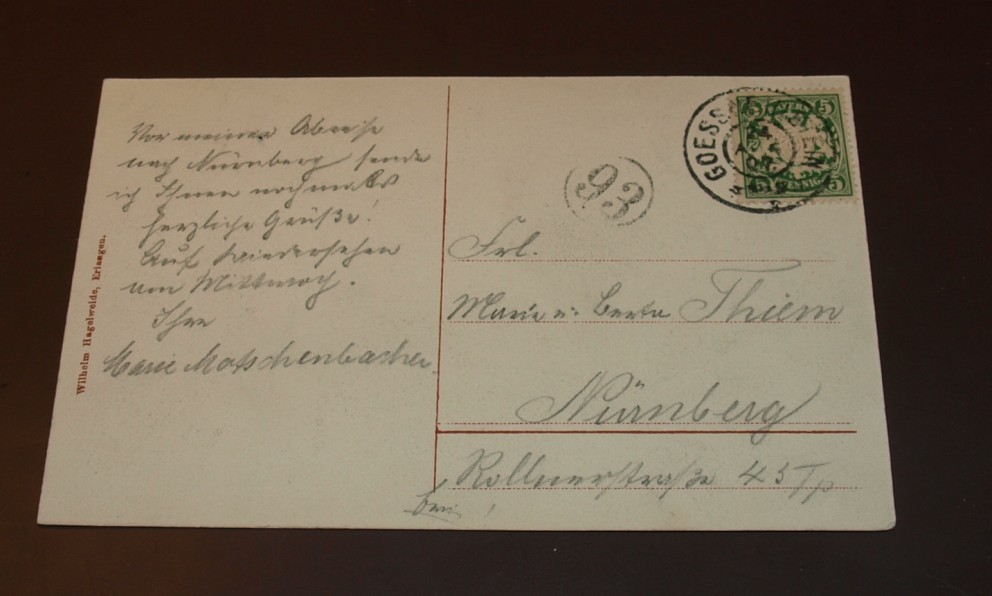 Vor meiner Abreise
nach Nürnberg sende
ich Ihnen nochmals
herzliche Grüße!
Auf Wiedersehen
am Mittwoch.
Ihre
Marie Motschenbacher.
Wilhelm Hagelweide, Erlangen.
GOESS
5 5
93
Frl.
Marie u. Berta Thiem
Nürnberg
Rollnerstraße 45